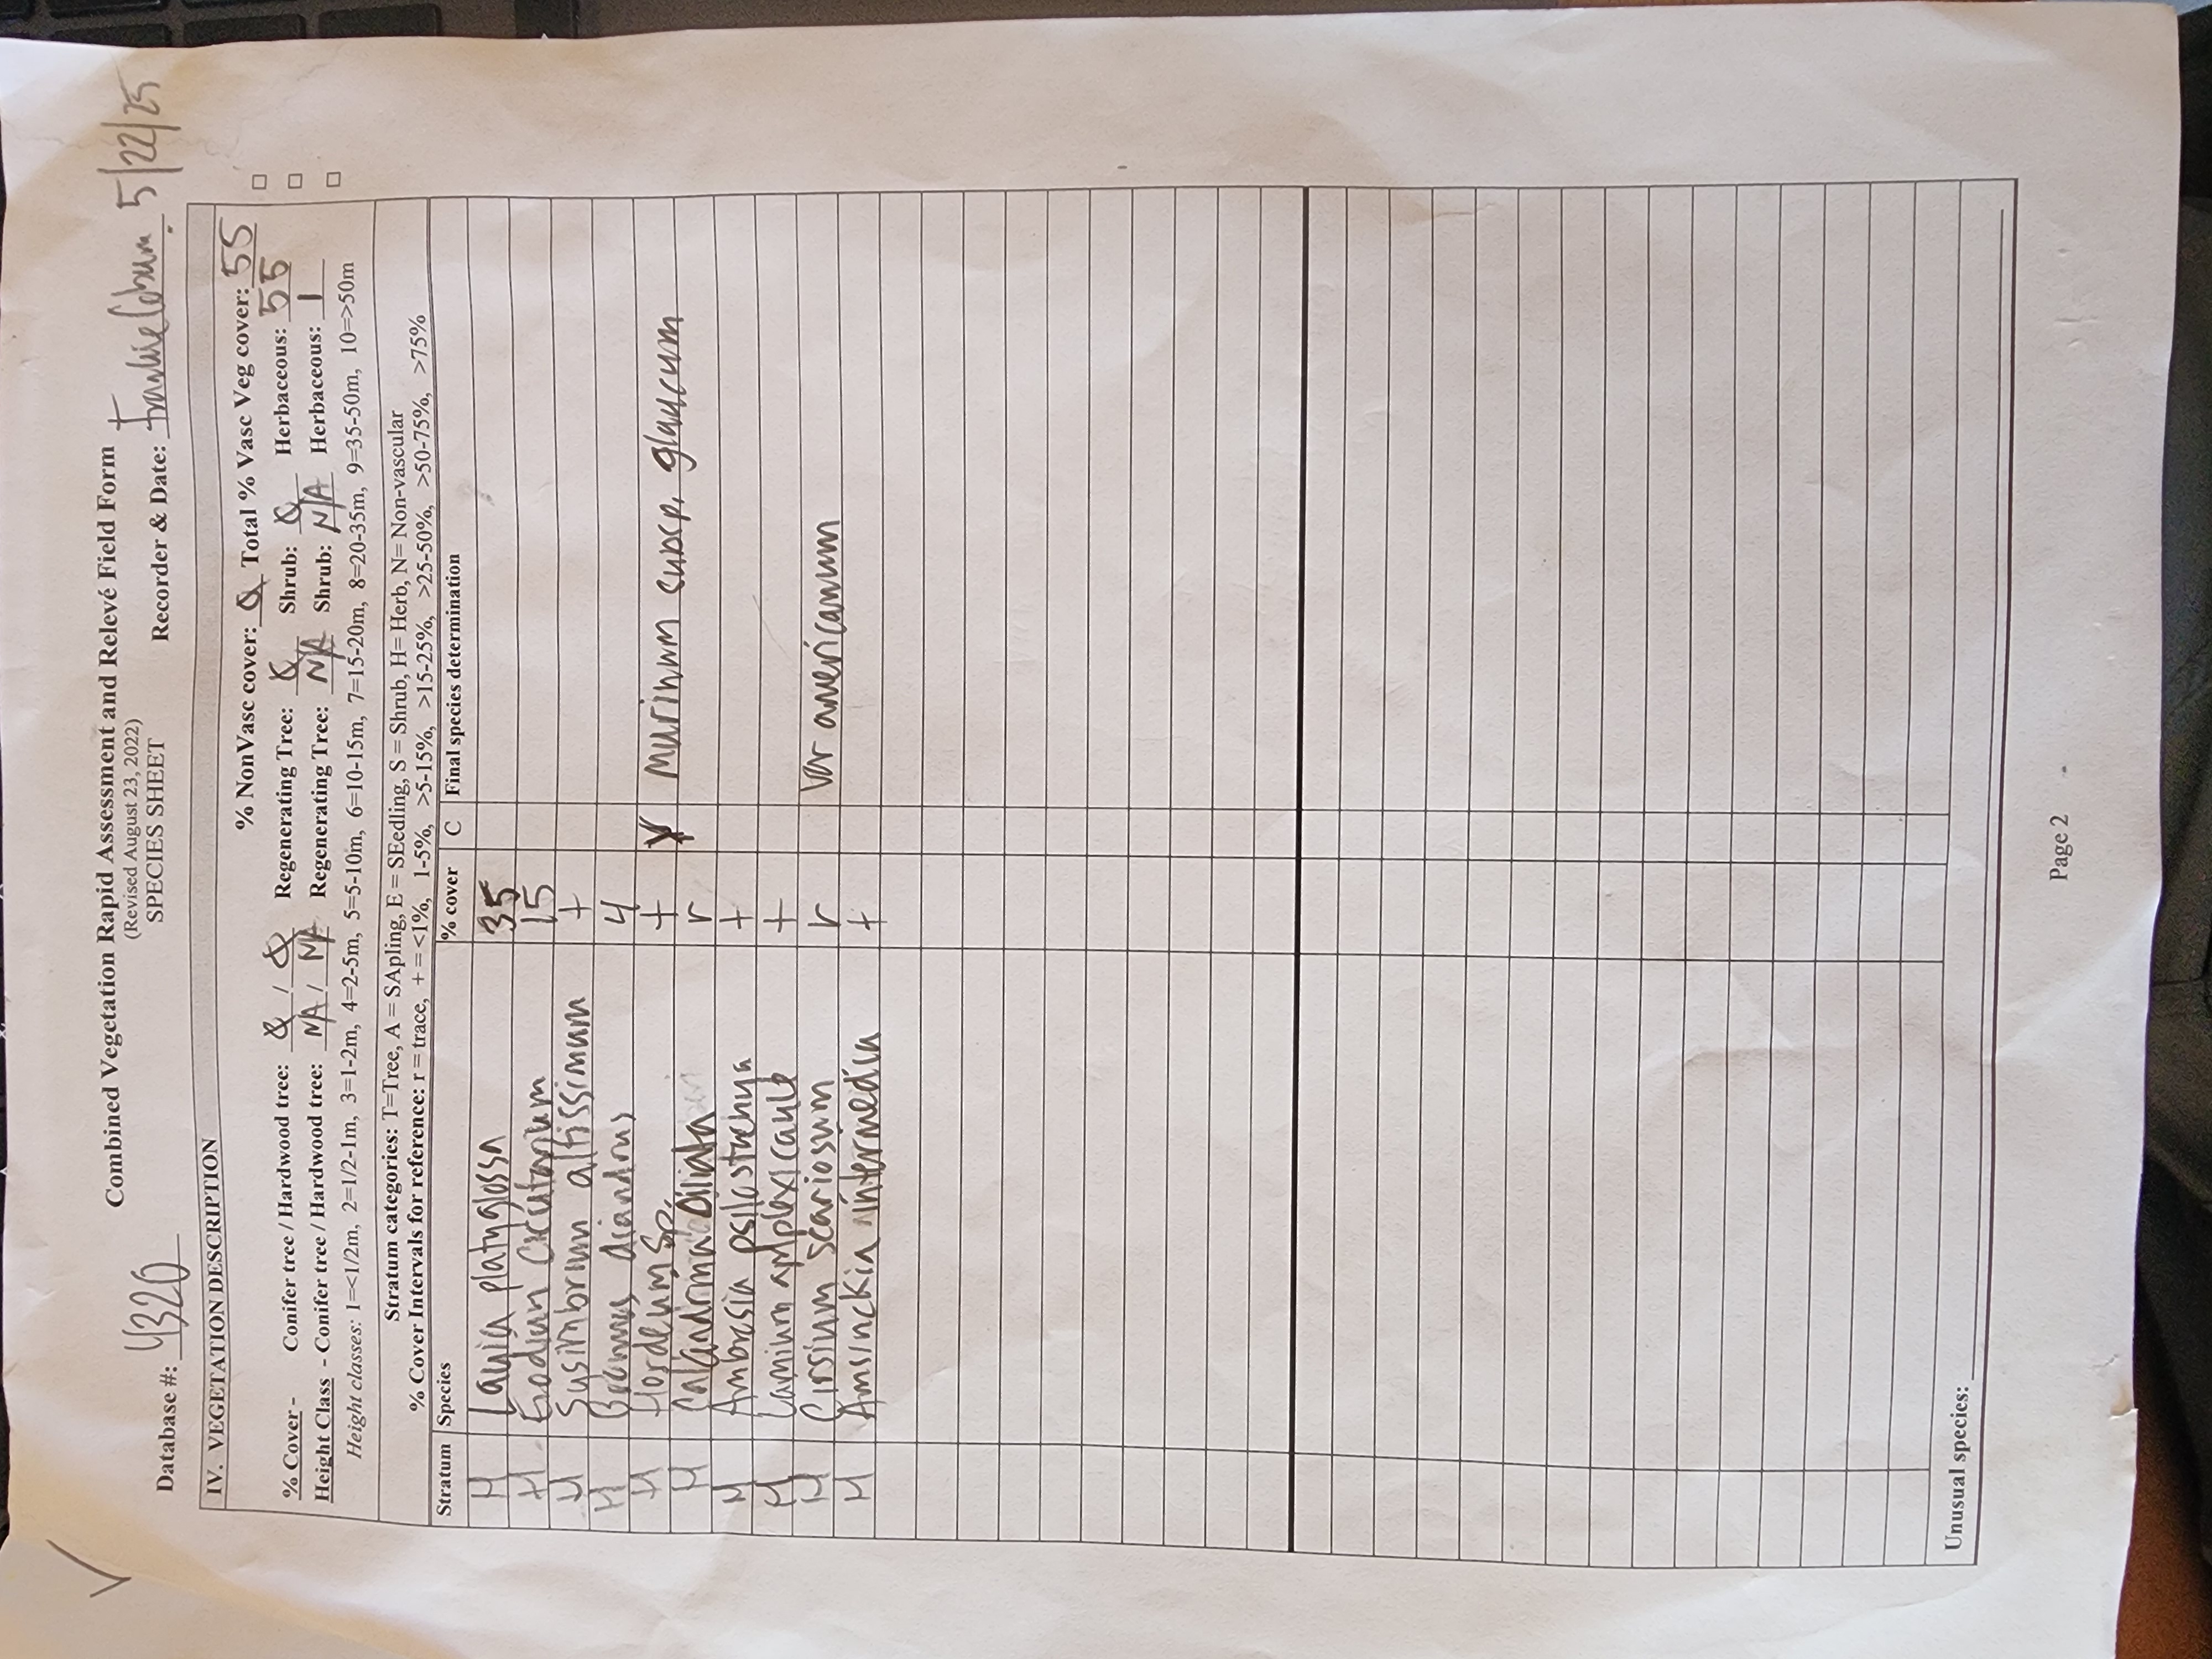 ✓
Combined Vegetation Rapid Assessment and Relevé Field Form
(Revised August 23, 2022)
Database #: 4320 SPECIES SHEET Recorder & Date: 5/22/25
IV. VEGETATION DESCRIPTION
% NonVasc cover: 0 Total % Vasc Veg cover: 55
% Cover - Conifer tree / Hardwood tree: 0 / 0 Regenerating Tree: 0 Shrub: 0 Herbaceous: 55
Height Class - Conifer tree / Hardwood tree: NA / NA Regenerating Tree: N/A Shrub: N/A Herbaceous: 1
Height classes: 1=<1/2m, 2=1/2-1m, 3=1-2m, 4=2-5m, 5=5-10m, 6=10-15m, 7=15-20m, 8=20-35m, 9=35-50m, 10=>50m
Stratum categories: T=Tree, A = SApling, E = SEedling, S = Shrub, H= Herb, N= Non-vascular
% Cover Intervals for reference: r = trace, + = <1%, 1-5%, >5-15%, >15-25%, >25-50%, >50-75%, >75%
Stratum Species % cover C Final species determination
H Layia platyglossa 35
H Erodium Cicutarium 15
H Sysimbrium altissimum +
H Bromus diandrus 4
H Hordeum Sp. + murinum subsp. glaucum
H Calandrinia ciliata r
H Ambrosia psilostachya +
H Lamium amplexicaule +
H Cirsium scariosum r var americanum
H Amsinckia intermedia +
Unusual species:
Page 2